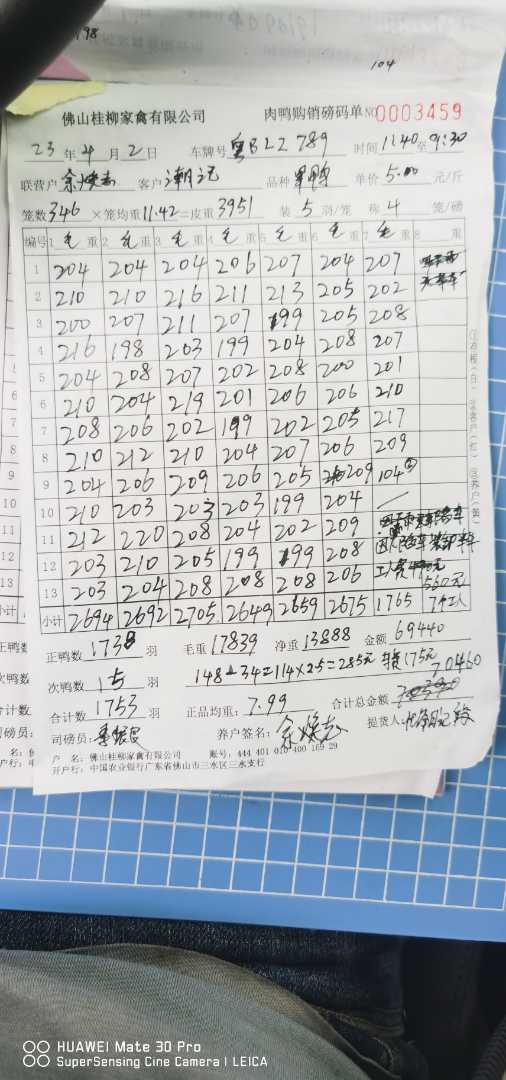 198
104
佛山桂柳家禽有限公司 肉鸭购销磅码单 NO 0003459
23年4月2日 车牌号 粤BLZ789 时间 11:40至9:30
联营户 余焕志 客户 品种 单价 5.00 元/斤
笼数 346 ×笼均重 11.42=皮重 3951 装 5 羽/笼 称 4 笼/磅
编号 1 毛 重 2 毛 重 3 毛 重 4 毛 重 5 毛 重 6 毛 重 7 毛 重 8 重
1 204 204 204 206 207 204 207
2 210 210 216 211 213 205 202
3 200 207 211 207 199 205 208
4 216 198 203 199 204 208 207
5 204 208 207 202 208 200 201
6 210 204 219 201 206 206 210
7 208 206 202 199 202 205 217
8 210 212 210 204 207 206 209
9 204 206 209 206 205 209 104②
10 210 203 203 203 199 204
11 212 220 208 204 202 209
12 203 210 205 199 199 208
13 203 204 208 208 208 206 560元
小计 2694 2692 2705 2649 2659 2675 1765 7个工人
正鸭数 1738 羽 毛重 17839 净重 13888 金额 69440
次鸭数 15 羽 148-34=114×25=285元 175元 70460
合计数 1753 羽 正品均重: 7.99 合计总金额
司磅员: 养户签名: 余焕志 提货人
户 名: 佛山桂柳家禽有限公司 账号: 444 401 010 400 169 29
开户行: 中国农业银行广东省佛山市三水区三水支行
HUAWEI Mate 30 Pro
SuperSensing Cine Camera | LEICA